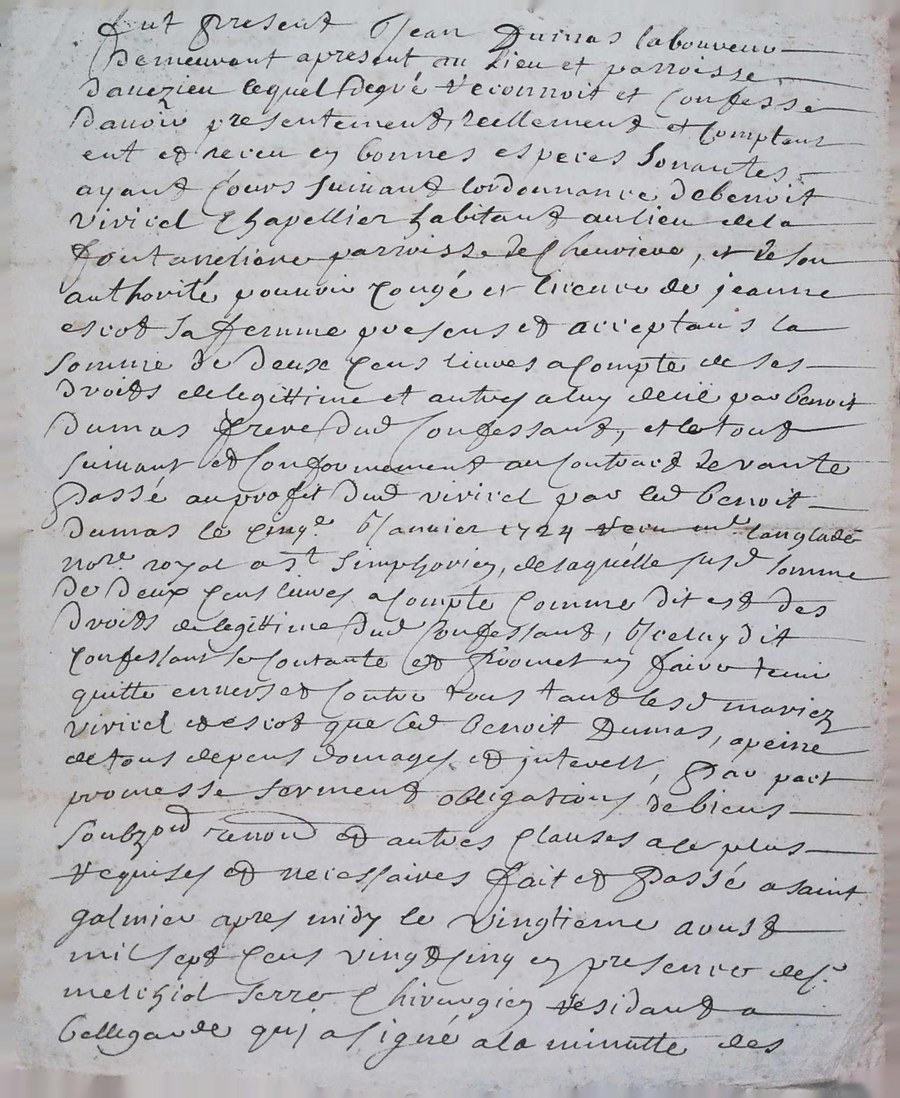 fut present Jean Dumas laboureur
demeurant apresent au lieu et parroisse
daveizieu lequel degré reconnoit et confesse
davoir presentement, reellement et comptant
eut et receu en bonnes especes sonantes
ayant cours suivant lordonnance de benoit
vivicel Chapellier habitant au lieu de la
fontaneliere parroisse de Chevriere, et de son
authorité pouvoir congé et licence de jeanne
escot sa femme presens et acceptans la
somme de deux cens livres a compte de ses
droits de legittime et autres a luy deüe par benoit
Dumas frere dud confessant, et le tout
suivant et conformement au contract de vante
passé au profit dud vivicel par led benoit
dumas le cinqe Janvier 1724 receu me langlade
nore royal a st Simphorien, de laquelle susd somme
de deux cens livres a compte comme dit est des
droits de legittime dud confessant, Iceluy dit
confessant se contante et promet en faire tenir
quitte envers et contre tous tant lesd mariez
vivicel et escot que led benoit Dumas, a peine
de tous depens domages et interest, par part
promesse serment obligations de biens
soubz on renond et autres clauses a ce plus
requises et necessaires fait et passé a saint
galmier apres midy le vingtieme aoust
mil sept cens vingt cinq en presence de sr
melchiol serre Chirurgien residant a
bellegarde qui a signé a la minutte des